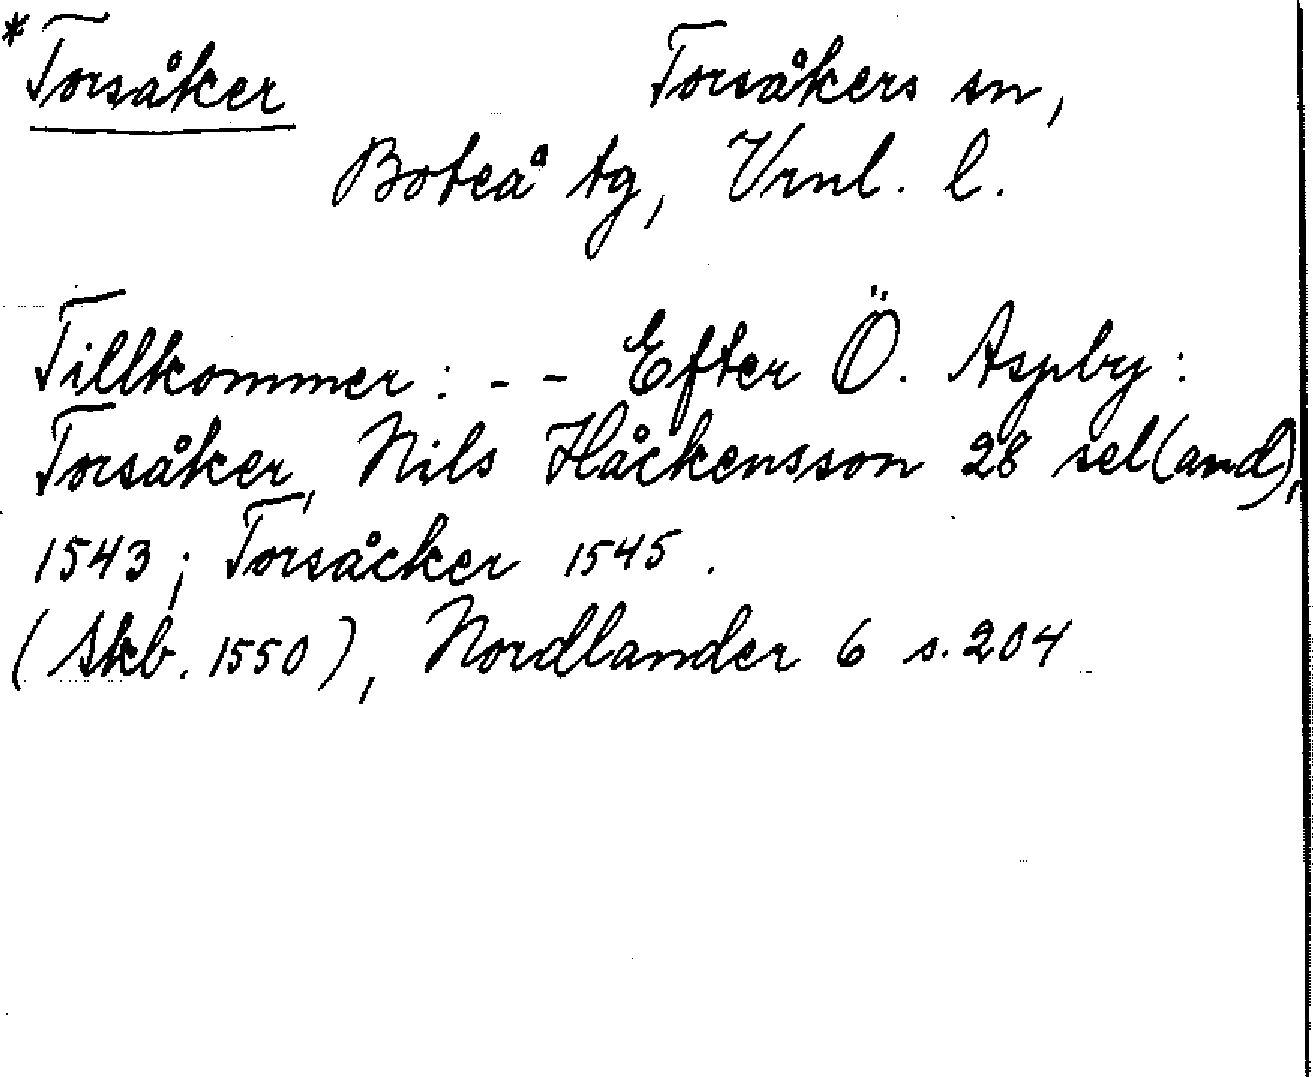 *Torsåker Torsåkers sn,
Boteå tg, Vrnl. l.
Tillkommer: - - Efter Ö. Aspby:
Torsåker, Nils Håckensson 28 sel(and),
1543; Torsåcker 1545.
(Skb. 1550), Nordlander 6 s. 204